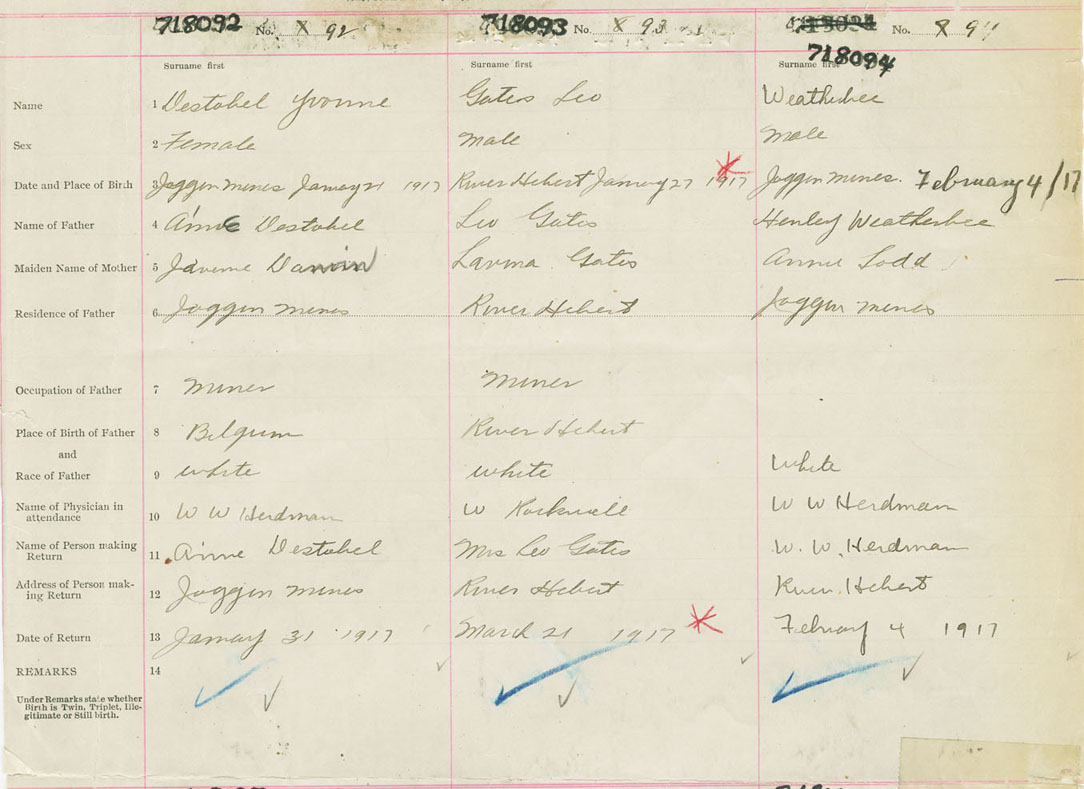 718092 No. X 92 718093 No. X 93 No. X 94
718094
Surname first Surname first Surname first
Name 1 Destobel Yvonne Gates Leo Weatherbee
Sex 2 Female Male Male
Date and Place of Birth 3 Joggin mines January 21 1917 River Hebert January 27 1917 Joggin mines. February 4/17
Name of Father 4 Aimé Destobel Leo Gates Henley Weatherbee
Maiden Name of Mother 5 Lavina Gates Annie
Residence of Father 6 Joggin mines River Hebert Joggin mines
Occupation of Father 7 Miner Miner
Place of Birth of Father 8 Belgium River Hebert
and
Race of Father 9 White White White
Name of Physician in
attendance 10 W W Herdman W Rockwell W W Herdman
Name of Person making
Return 11 Aime Destobel Mrs Leo Gates W. W. Herdman
Address of Person mak-
ing Return 12 Joggin mines River Hebert River Hebert
Date of Return 13 January 31 1917 March 21 1917 February 4 1917
REMARKS 14
Under Remarks state whether
Birth is Twin, Triplet, Ille-
gitimate or Still birth.